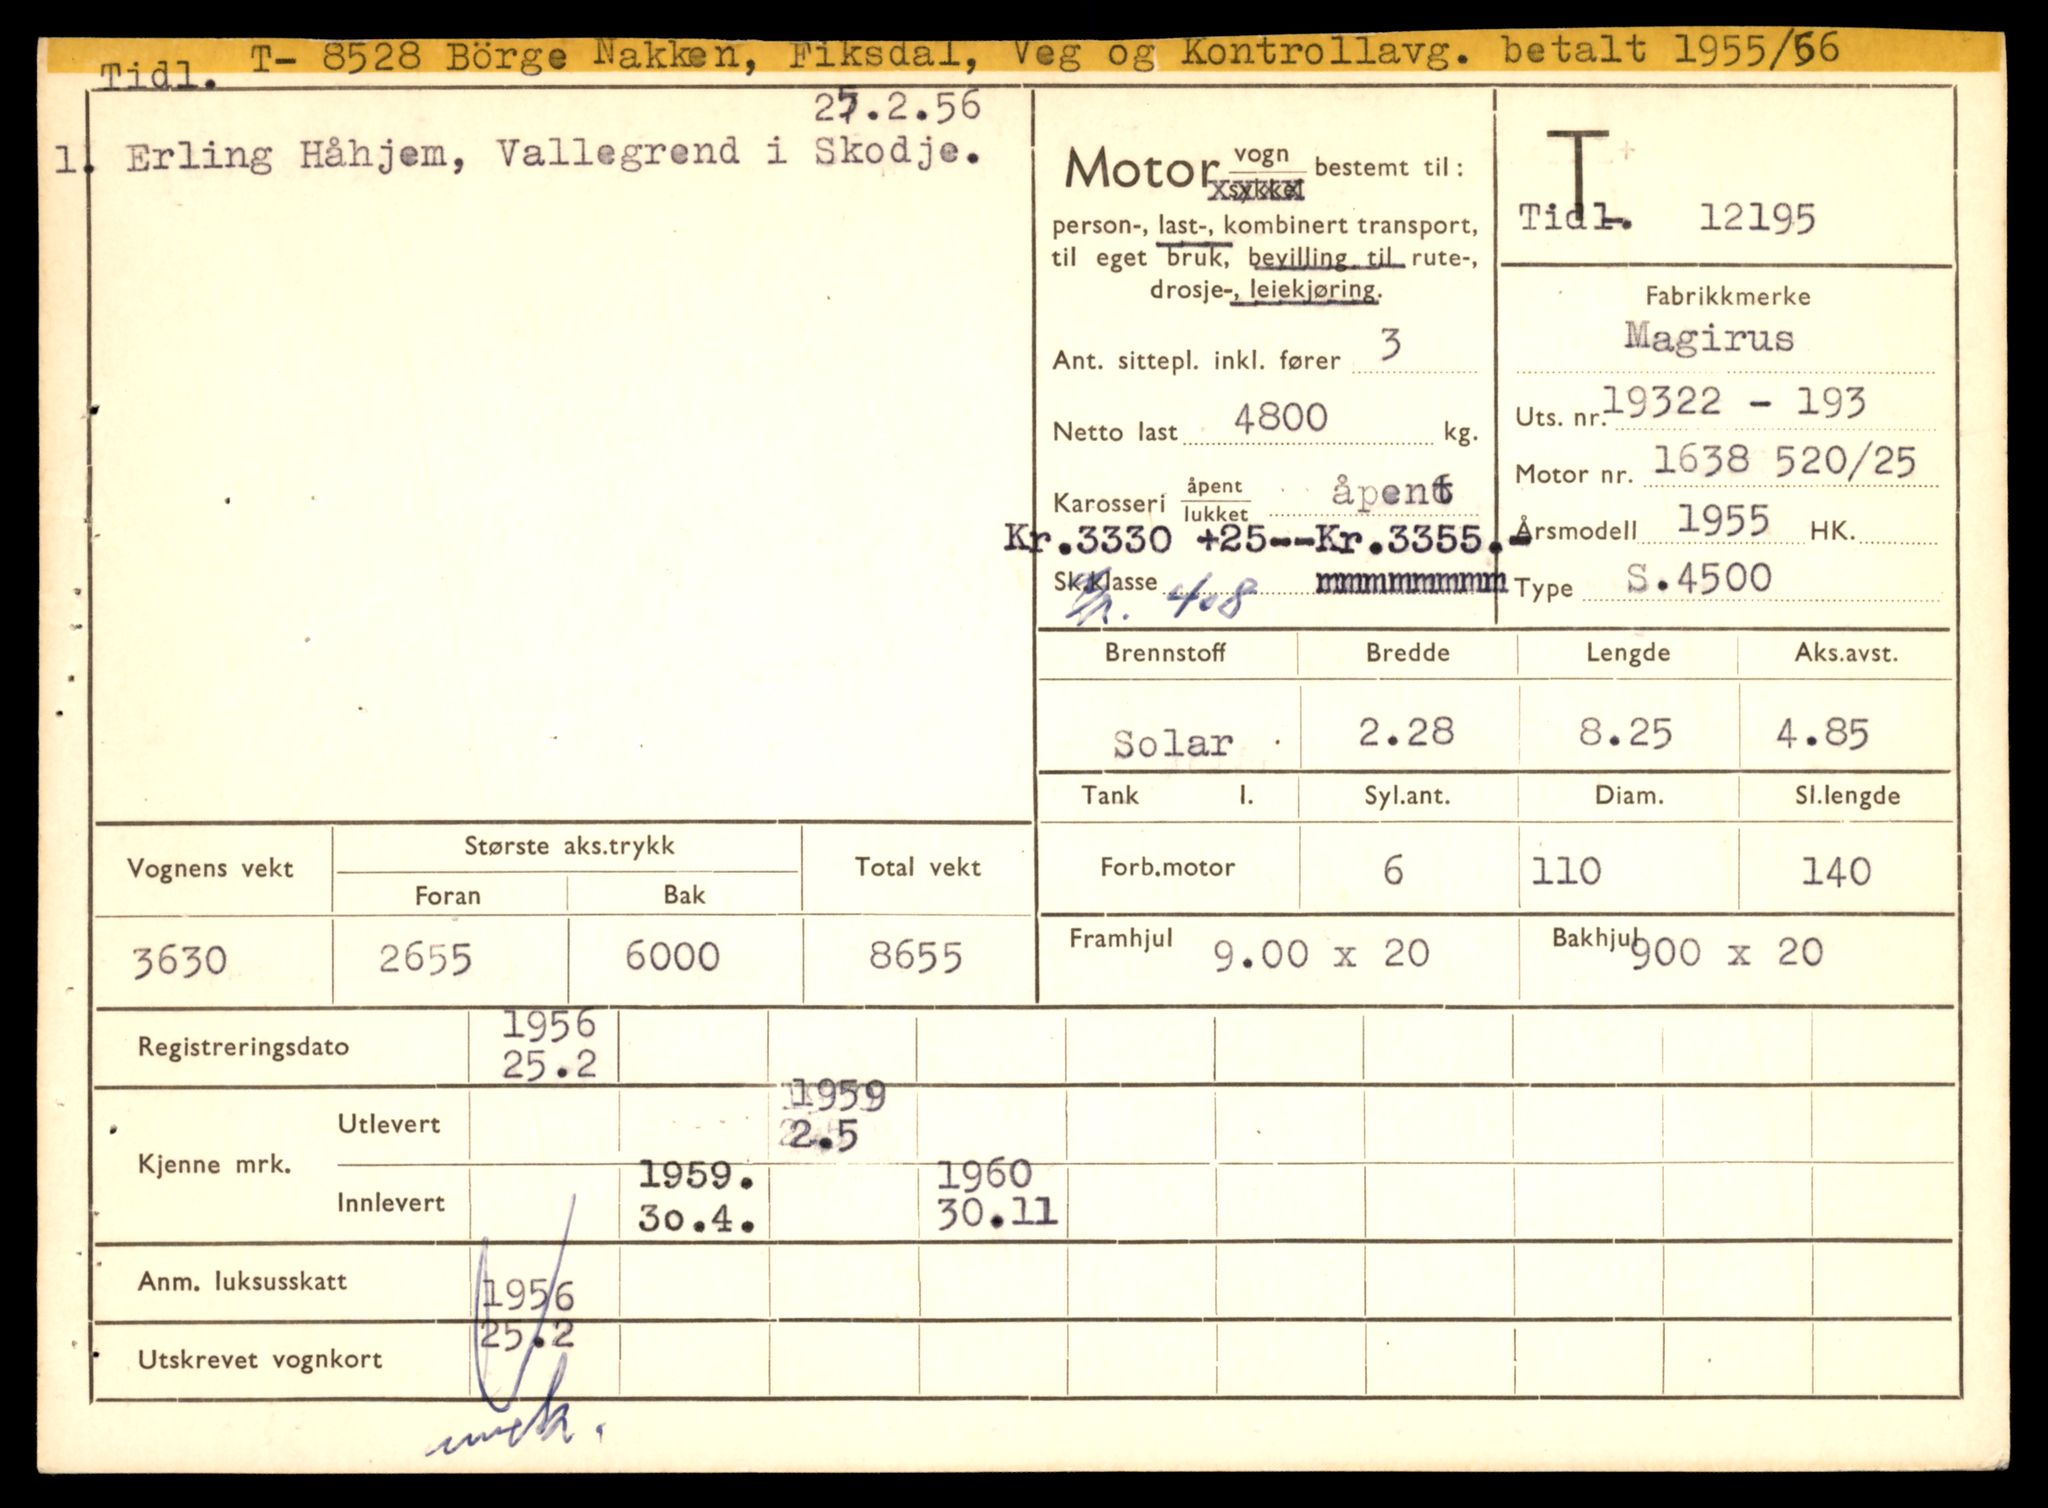 T- 8528 Börge Nakken, Fiksdal, Veg og Kontrollavg. betalt 1955/56
Tidl.
27.2.56
1. Erling Håhjem, Vallegrend i Skodje.
Motor vogn sykkel bestemt til:
person-, last-, kombinert transport,
til eget bruk, bevilling til rute-,
drosje-, leiekjøring.
Ant. sittepl. inkl. fører 3
Netto last 4800 kg.
Karosseri åpent lukket åpent
Kr.3330 +25--Kr.3355.-
Sk.klasse mmmmmmmmm
4.8
T
Tidl. 12195
Fabrikkmerke
Magirus
Uts. nr. 19322 - 193
Motor nr. 1638 520/25
Årsmodell 1955 HK.
Type S.4500
Brennstoff Bredde Lengde Aks.avst.
Solar 2.28 8.25 4.85
Tank l. Syl.ant. Diam. Sl.lengde
Forb.motor 6 110 140
Framhjul 9.00 x 20 Bakhjul 900 x 20
Vognens vekt Største aks.trykk Total vekt
Foran Bak
3630 2655 6000 8655
Registreringsdato 1956
25.2
Kjenne mrk.
Utlevert 1959
2.5
Innlevert 1959. 1960
30.4. 30.11
Anm. luksusskatt 1956
25.2
Utskrevet vognkort